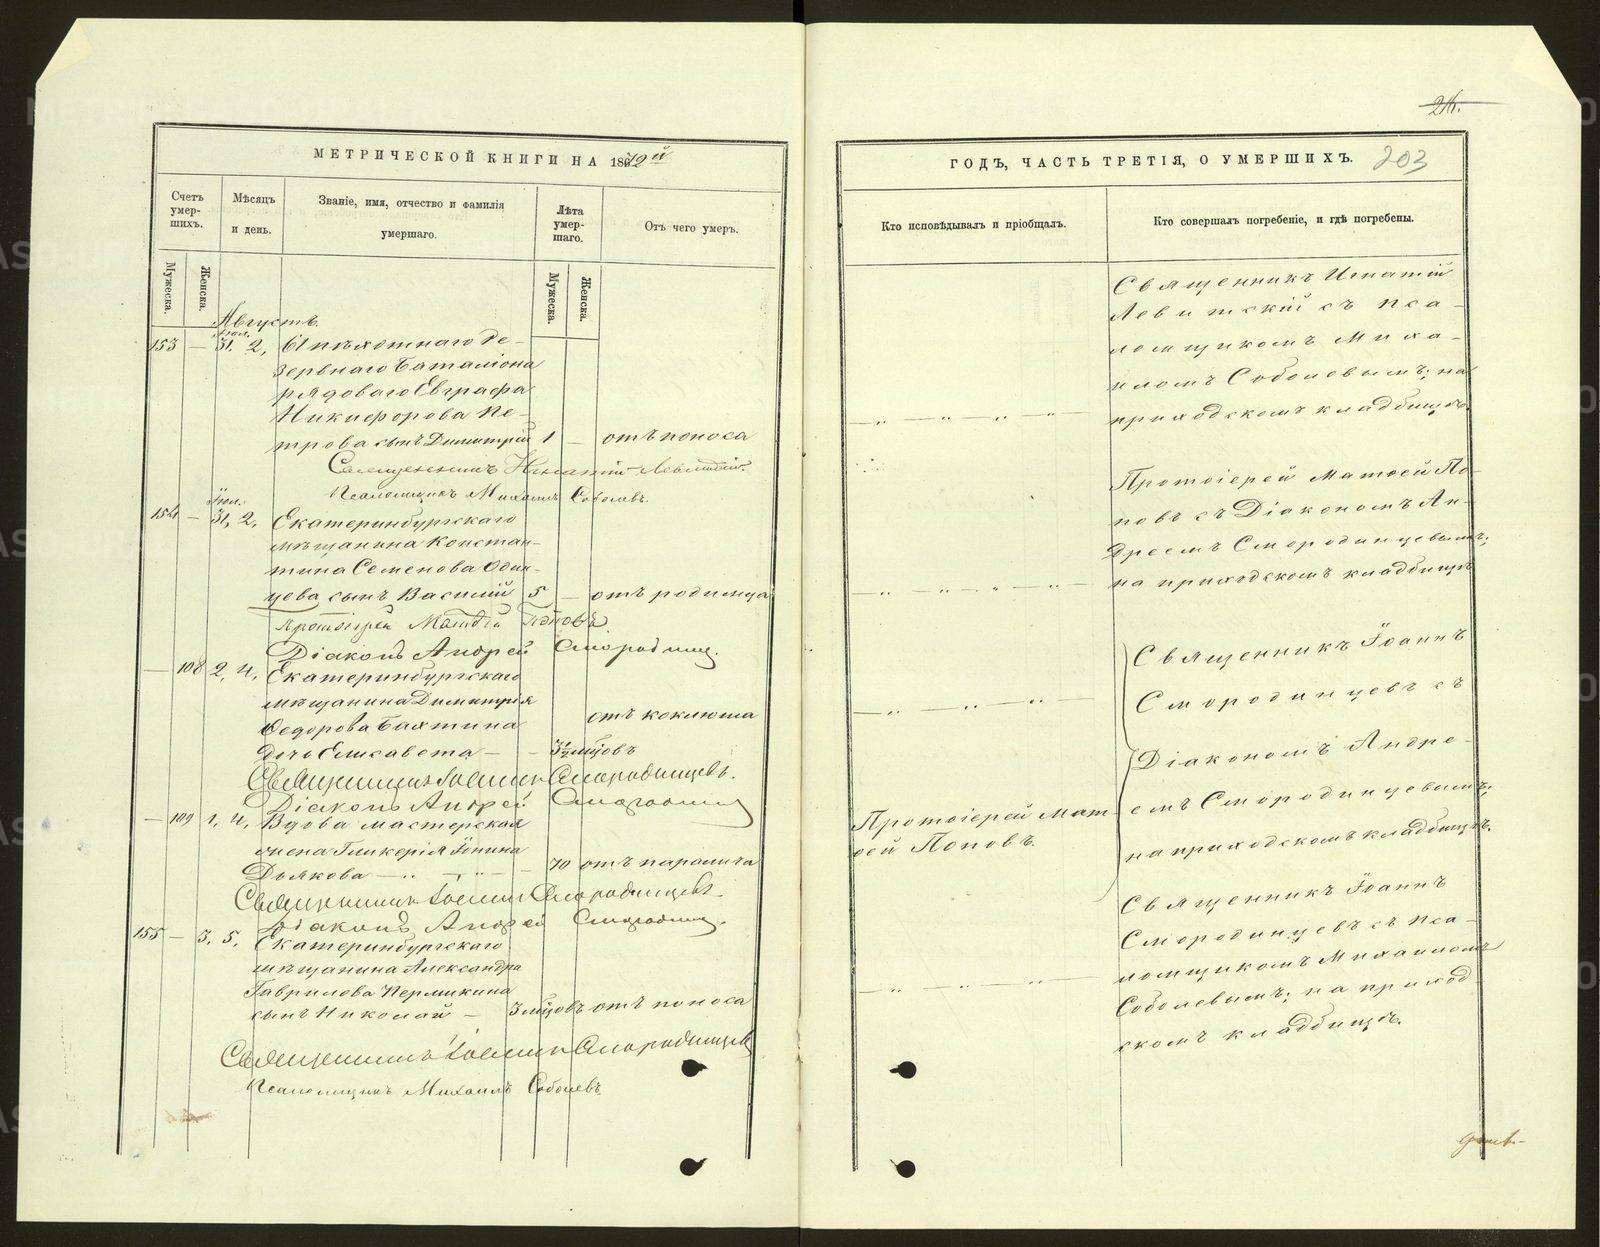 МЕТРИЧЕСКОЙ КНИГИ НА 1872й
Счетъ умер-шихъ.
Мужеска.
Женска.
Мѣсяцъ и день.
Званіе, имя, отчество и фамилія умершаго.
Лѣта умер-шаго.
Мужеска.
Женска.
Отъ чего умеръ.
Августъ.
Іюл.
153 — 31. 2. 61 пѣхотнаго Ре-
зервнаго Баталіона
рядоваго Евграфа
Никифорова Пе-
трова сынъ Димитрій 1 — отъ поноса
Священникъ Игнатій Левитскій.
Псаломщикъ Михаилъ Соболевъ.
Іюл.
154 — 31, 2, Екатеринбургскаго
мѣщанина Констан-
тина Семенова Один-
цева сынъ Василій 5 — отъ родимца
Протоіерей Матѳей Поповъ
Діаконъ Андрей Смородинц.
— 108 2, 4, Екатеринбургскаго
мѣщанина Димитрія
Ѳедорова Бахтина отъ коклюша
дочь Елисавета — — 3½ мѣсцовъ
Священникъ Іоаннъ Смородинцевъ.
Діаконъ Андрей Смородинц
— 109 1, 4, Вдова мастерская
жена Гликерія Іонина
Дьякова — „ — „ — 70 отъ паралича
Священникъ Іоаннъ Смородинцевъ
Діаконъ Андрей Смородинц.
155 — 3, 5, Екатеринбургскаго
мѣщанина Александра
Гаврилова Пермикина
сынъ Николай — 3 мѣсцовъ отъ поноса
Священникъ Іоаннъ Смородинцевъ
Псаломщикъ Михаилъ Соболевъ
ГОДЪ, ЧАСТЬ ТРЕТІЯ, О УМЕРШИХЪ. 203
Кто исповѣдывалъ и пріобщалъ.
Кто совершалъ погребеніе, и гдѣ погребены.
Священникъ Игнатій
Левитскій съ Пса-
ломщикомъ Миха-
иломъ Соболевымъ; на
приходскомъ кладбищѣ.
Протоіерей Матѳей По-
повъ съ Діакономъ Ан-
дреемъ Смородинцевымъ;
на приходскомъ кладбищѣ
Священникъ Іоаннъ
Смородинцевъ съ
Діакономъ Андре-
емъ Смородинцевымъ;
на приходскомъ кладбищѣ.
Протоіерей Мат-
ѳей Поповъ.
Священникъ Іоаннъ
Смородинцевъ съ Пса-
ломщикомъ Михаиломъ
Соболевымъ; на приход-
скомъ кладбищѣ.